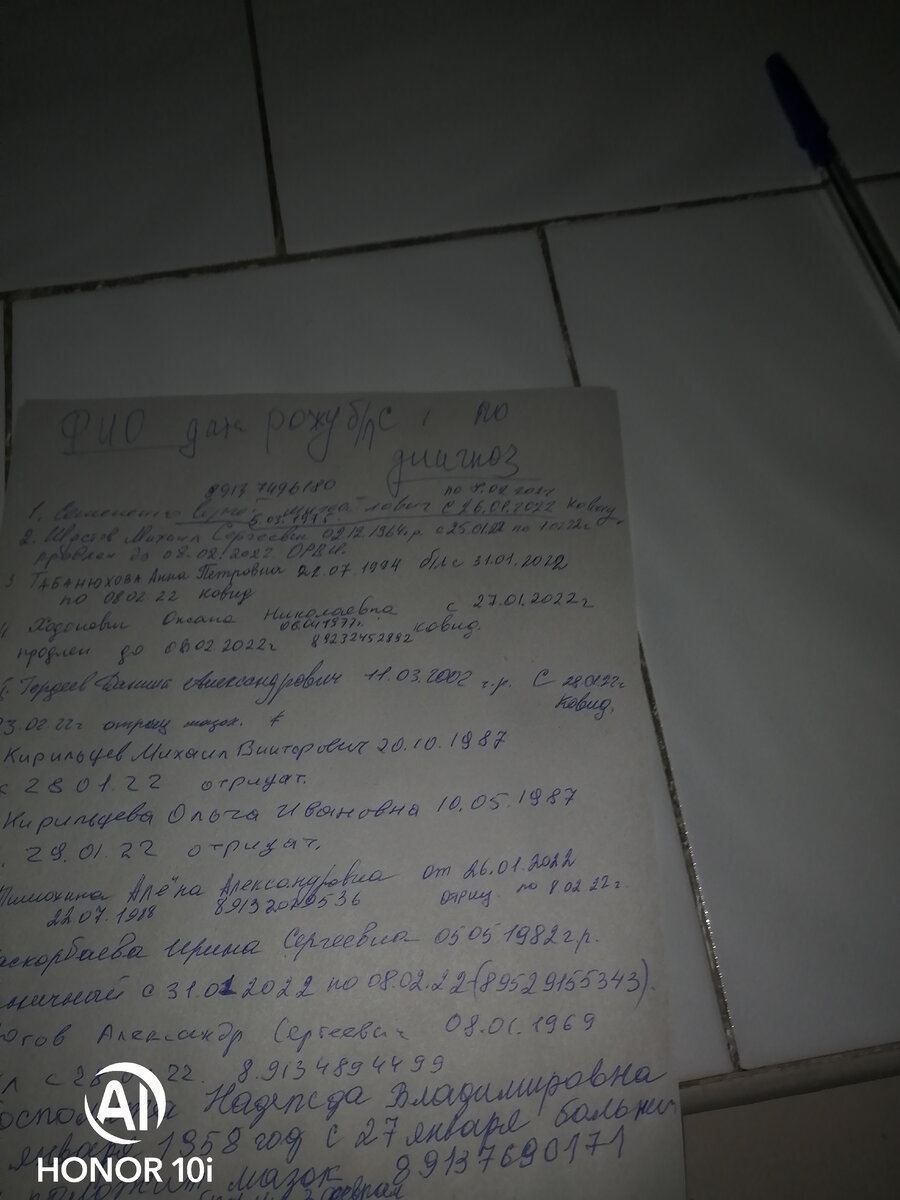 ФИО дата рожд б/л с и по
диагноз
89137496180 по 8.02.2022
1. Сергей с 26.01.2022 ковид.
5.03.1975.
2. Михаил Сергеевич 02.12.1964г.р. с 25.01.22 по
продлён до 08.02.2022 ОРВИ.
3 ТАБАНЮХОВА Анна Петровна 22.07.1994 б/л с 31.01.2022
по 08 02 22 ковид
Оксана Николаевна с 27.01.2022г
06.04.1977г. ковид.
продлен до 08.02.2022г 89232452892
Гордеев Данил Александрович 11.03.2002 г.р. с 28.01.22г
ковид.
3.02.22г отриц мазок.
Кирильцев Михаил Викторович 20.10.1987
с 28 01.22 отрицат.
Кирильцева Ольга Ивановна 10.05.1987
29.01.22 отрицат.
Алёна Александровна от 26.01.2022
22.07.1988 отриц. по 8.02.22г.
Ирина Сергеевна 05 05 1982г.р.
ничный с 31.01 2022 по 08.02.22 (89529155343).
Александр Сергеевич 08.01.1969
22. 8.9134894499
Надежда Владимировна
января 1958 год с 27 января больнич
мазок 89137690171
февраля
AI
HONOR 10i